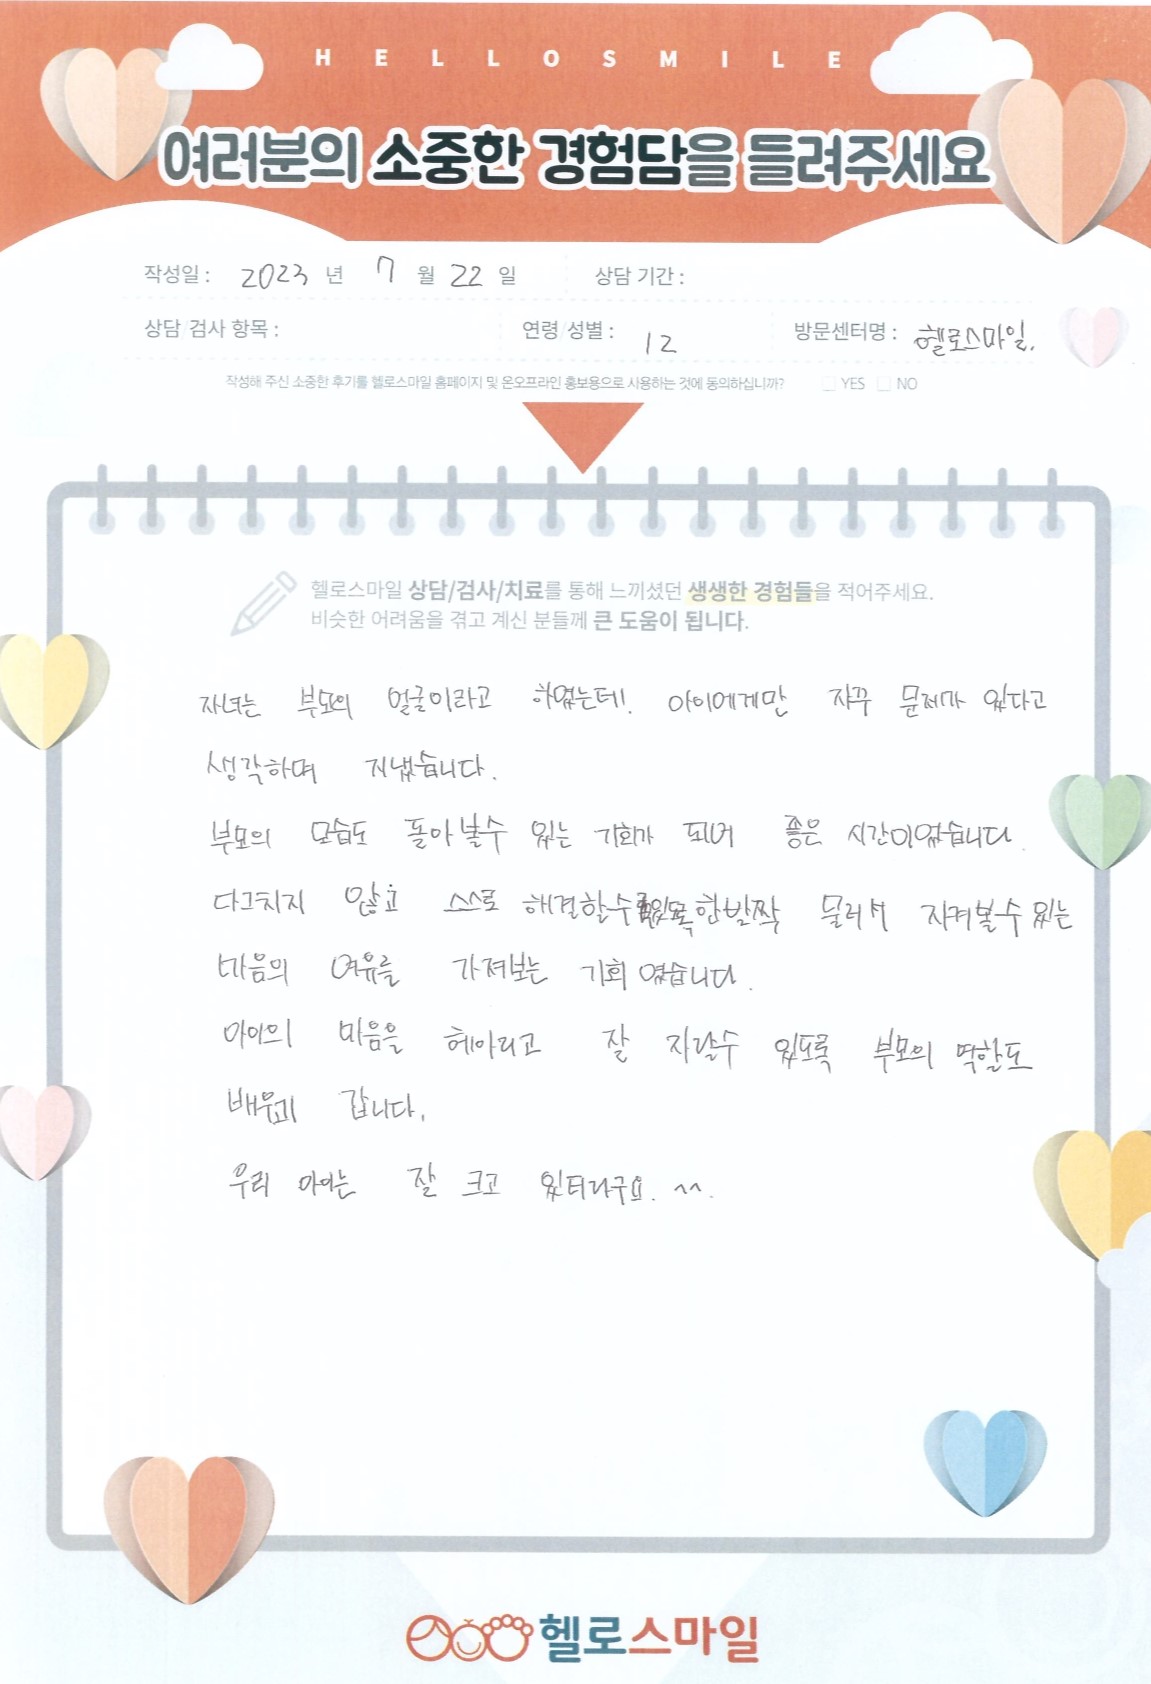 HELLOSMILE
여러분의 소중한 경험담을 들려주세요
작성일 : 2023 년 7 월 22 일 상담 기간 :
상담/검사 항목 : 연령/성별 : 12 방문센터명 : 헬로스마일.
작성해 주신 소중한 후기를 헬로스마일 홈페이지 및 온오프라인 홍보용으로 사용하는 것에 동의하십니까? YES NO
헬로스마일 상담/검사/치료를 통해 느끼셨던 생생한 경험들을 적어주세요.
비슷한 어려움을 겪고 계신 분들께 큰 도움이 됩니다.
자녀는 부모의 얼굴이라고 하였는데! 아이에게만 자꾸 문제가 있다고
생각하며 지냈습니다.
부모의 모습도 돌아볼수 있는 기회가 되어 좋은 시간이었습니다.
다그치지 않고 스스로 해결할수 있도록 한발짝 물러서 지켜볼수 있는
마음의 여유를 가져보는 기회 였습니다.
아이의 마음을 헤아리고 잘 자랄수 있도록 부모의 역할도
배우고 갑니다.
우리 아이는 잘 크고 있더라구요. ^^.
헬로스마일